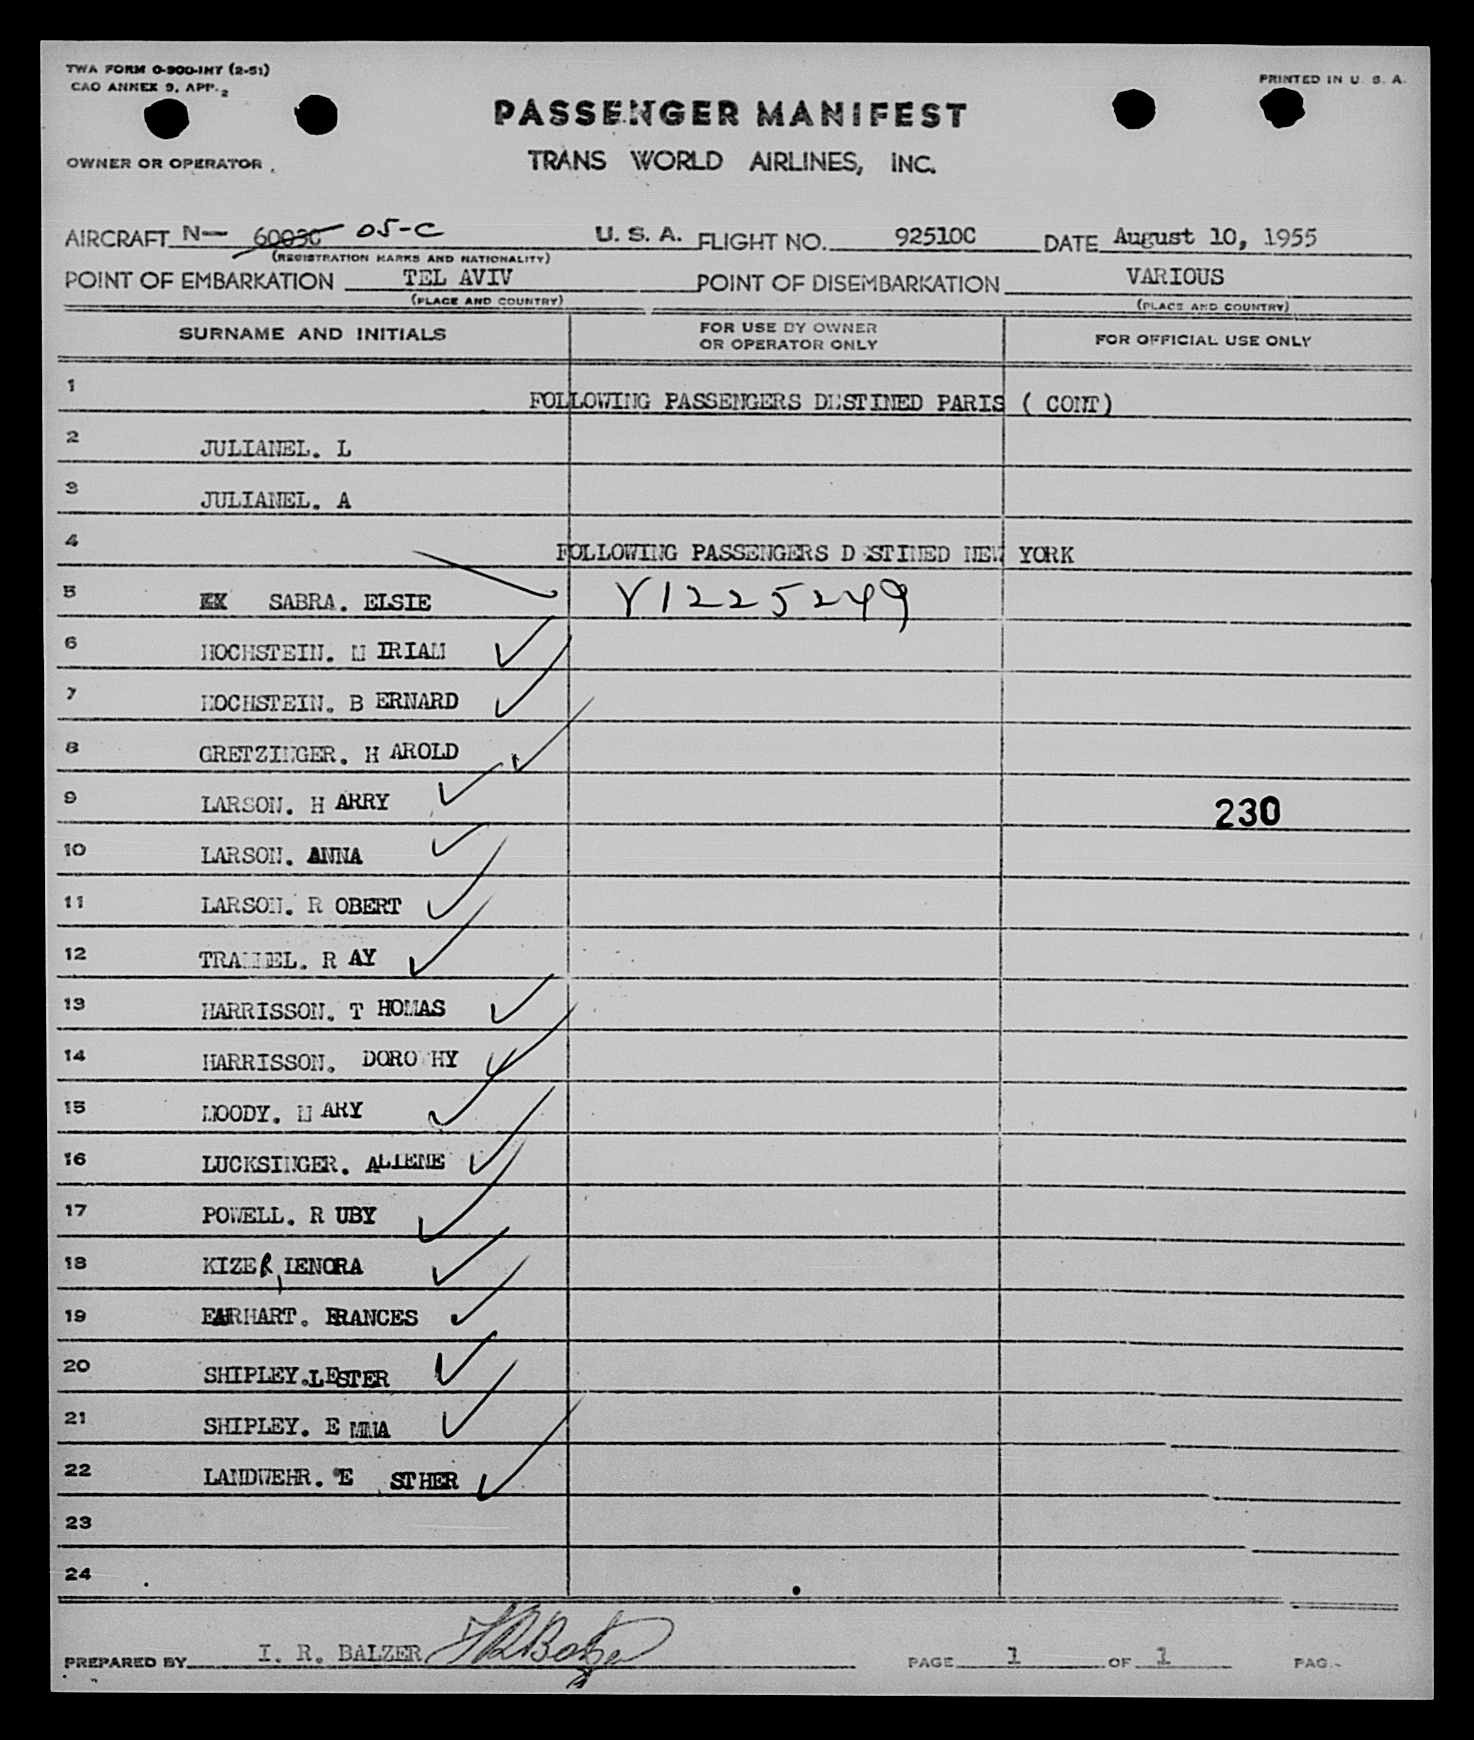 TWA FORM O-900-INT (2-51)
CAO ANNEX 9, APP. 2
PRINTED IN U. S. A.
PASSENGER MANIFEST
OWNER OR OPERATOR
TRANS WORLD AIRLINES, INC.
AIRCRAFT N- 6003C 05-C U. S. A. FLIGHT NO. 92510C DATE August 10, 1955
(REGISTRATION MARKS AND NATIONALITY)
POINT OF EMBARKATION TEL AVIV POINT OF DISEMBARKATION VARIOUS
(PLACE AND COUNTRY) (PLACE AND COUNTRY)
SURNAME AND INITIALS FOR USE BY OWNER OR OPERATOR ONLY FOR OFFICIAL USE ONLY
1 FOLLOWING PASSENGERS DESTINED PARIS ( CONT)
2 JULIANEL. L
3 JULIANEL. A
4 FOLLOWING PASSENGERS D ESTINED NEW YORK
5 SABRA. ELSIE V1225249
6 HOCHSTEIN. M IRIAM
7 HOCHSTEIN. B ERNARD
8 GRETZINGER. H AROLD
9 LARSON. H ARRY 230
10 LARSON. ANNA
11 LARSON. R OBERT
12 TRAMMEL. R AY
13 HARRISSON. T HOMAS
14 HARRISSON. DOROTHY
15 MOODY. M ARY
16 LUCKSINGER. ALIENE
17 POWELL. R UBY
18 KIZER, LENORA
19 EARHART. FRANCES
20 SHIPLEY.LESTER
21 SHIPLEY. E MMA
22 LANDWEHR. E STHER
23
24
PREPARED BY I. R. BALZER I R Balzer PAGE 1 OF 1 PAG